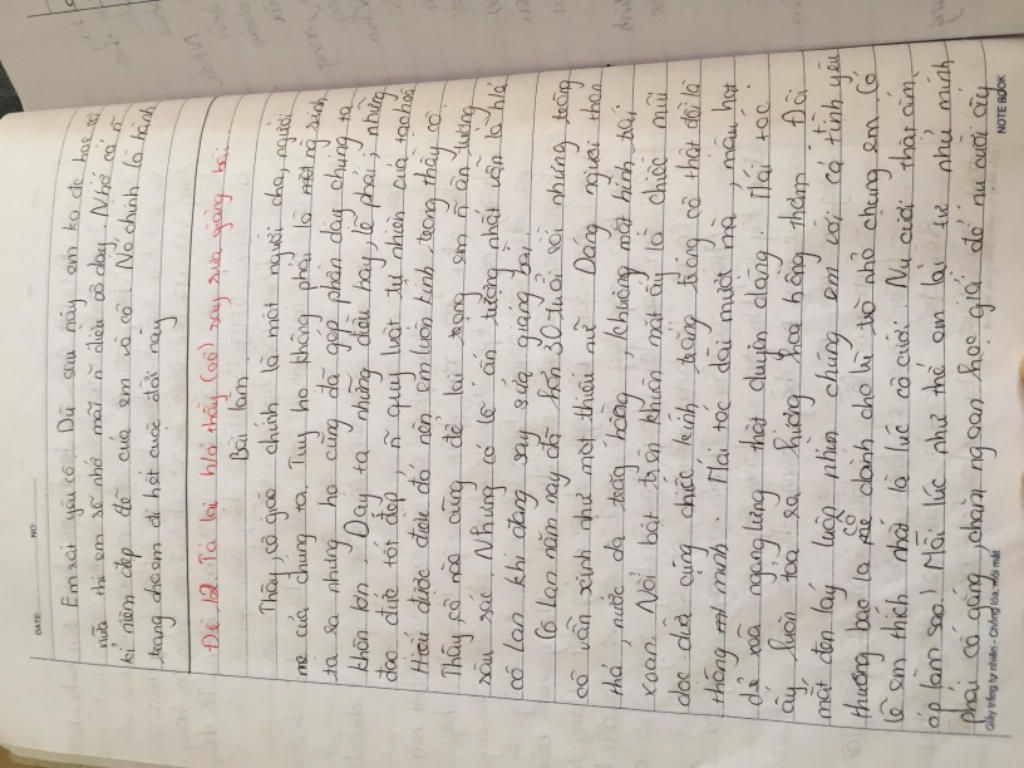 DATE NO
Em rất yêu cô! Dù sau này em ko đc học cô
nữa thì em sẽ nhớ mãi ~ điều cô dạy. Nhớ cả ~
kỉ niệm đẹp đẽ của em và cô. Nó chính là hành
trang theo em đi hết cuộc đời này
Đề 12. Tả lại h/a thầy (cô) say sưa giảng bài.
Bài làm
Thầy, cô giáo chính là một người cha, người
mẹ của chúng ta. Tuy họ không phải là sinh
ta ra nhưng họ cũng đã góp phần dạy chúng ta
khôn lớn. Dạy ta những điều hay, lẽ phải, những
đạo đức tốt đẹp, ~ quy luật tự nhiên của tạo hoá
Hiểu được điều đó nên em luôn kính trọng thầy cô
Thầy, cô nào cũng để lại trong em ~ ấn tượng
sâu sắc. Nhưng có lẽ ấn tượng nhất vẫn là h/a
cô Lan khi đang say sưa giảng bài.
Cô Lan năm nay đã hơn 30 tuổi rồi nhưng trông
cô vẫn xinh như một thiếu nữ. Dáng người thon
thả, nước da trắng hồng, khuông mặt hình trái
xoan. Nổi bật trên khuôn mặt ấy là chiếc mũi
dọc dừa cùng chiếc kính trắng trông cô thật đôi là
thông minh. Mái tóc dài mượt mà, màu hạt
dẻ xoã ngang lưng thật duyên dáng. Mái tóc
ấy luôn toả ra hương hoa hồng thơm. Đôi
mắt đen láy luôn nhìn chúng em với cả tình yêu
thương bao la cô dành cho lũ trò nhỏ chúng em. Có
lẽ em thích nhất là lúc cô cười. Nụ cười thật ấm
áp làm sao! Mỗi lúc như thế em lại tự nhủ mình
phải cố gắng, chăm ngoan học giỏi để nụ cười ấy
Giấy trắng tự nhiên - Chống lóa, mỏi mắt
NOTE BOOK